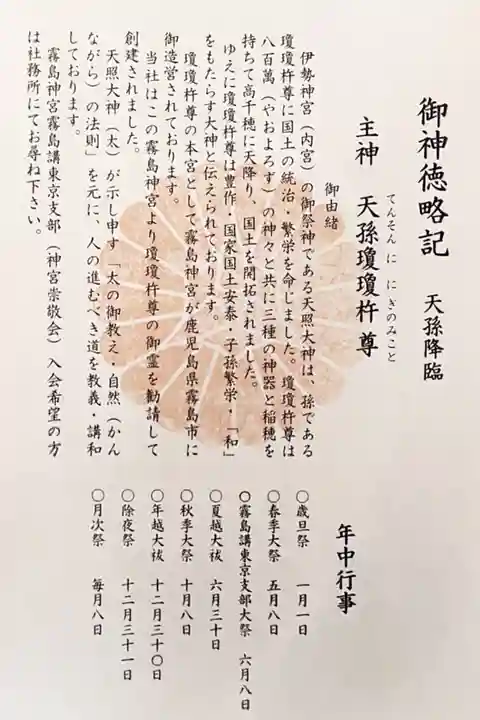 御神徳略記　天孫降臨
主神　天孫瓊瓊杵尊
てんそん に にぎのみこと
御由緒
伊勢神宮（内宮）の御祭神である天照大神は、孫である
瓊瓊杵尊に国土の統治・繁栄を命じました。瓊瓊杵尊は
八百萬（やおよろず）の神々と共に三種の神器と稲穂を
持ちて高千穂に天降り、国土を開拓されました。
ゆえに瓊瓊杵尊は豊作・国家国土安泰・子孫繁栄・「和」
をもたらす大神と伝えられております。
瓊瓊杵尊の本宮として霧島神宮が鹿児島県霧島市に
御造営されております。
当社はこの霧島神宮より瓊瓊杵尊の御霊を勧請して
創建されました。
天照大神（太）が示し申す「太の御教え・自然（かん
ながら）の法則」を元に、人の進むべき道を教義・講和
しております。
霧島神宮霧島講東京支部（神宮崇敬会）入会希望の方
は社務所にてお尋ね下さい。
年中行事
〇歳旦祭　一月一日
〇春季大祭　五月八日
〇霧島講東京支部大祭　六月八日
〇夏越大祓　六月三十日
〇秋季大祭　十月八日
〇年越大祓　十二月三十〇日
〇除夜祭　十二月三十一日
〇月次祭　毎月八日